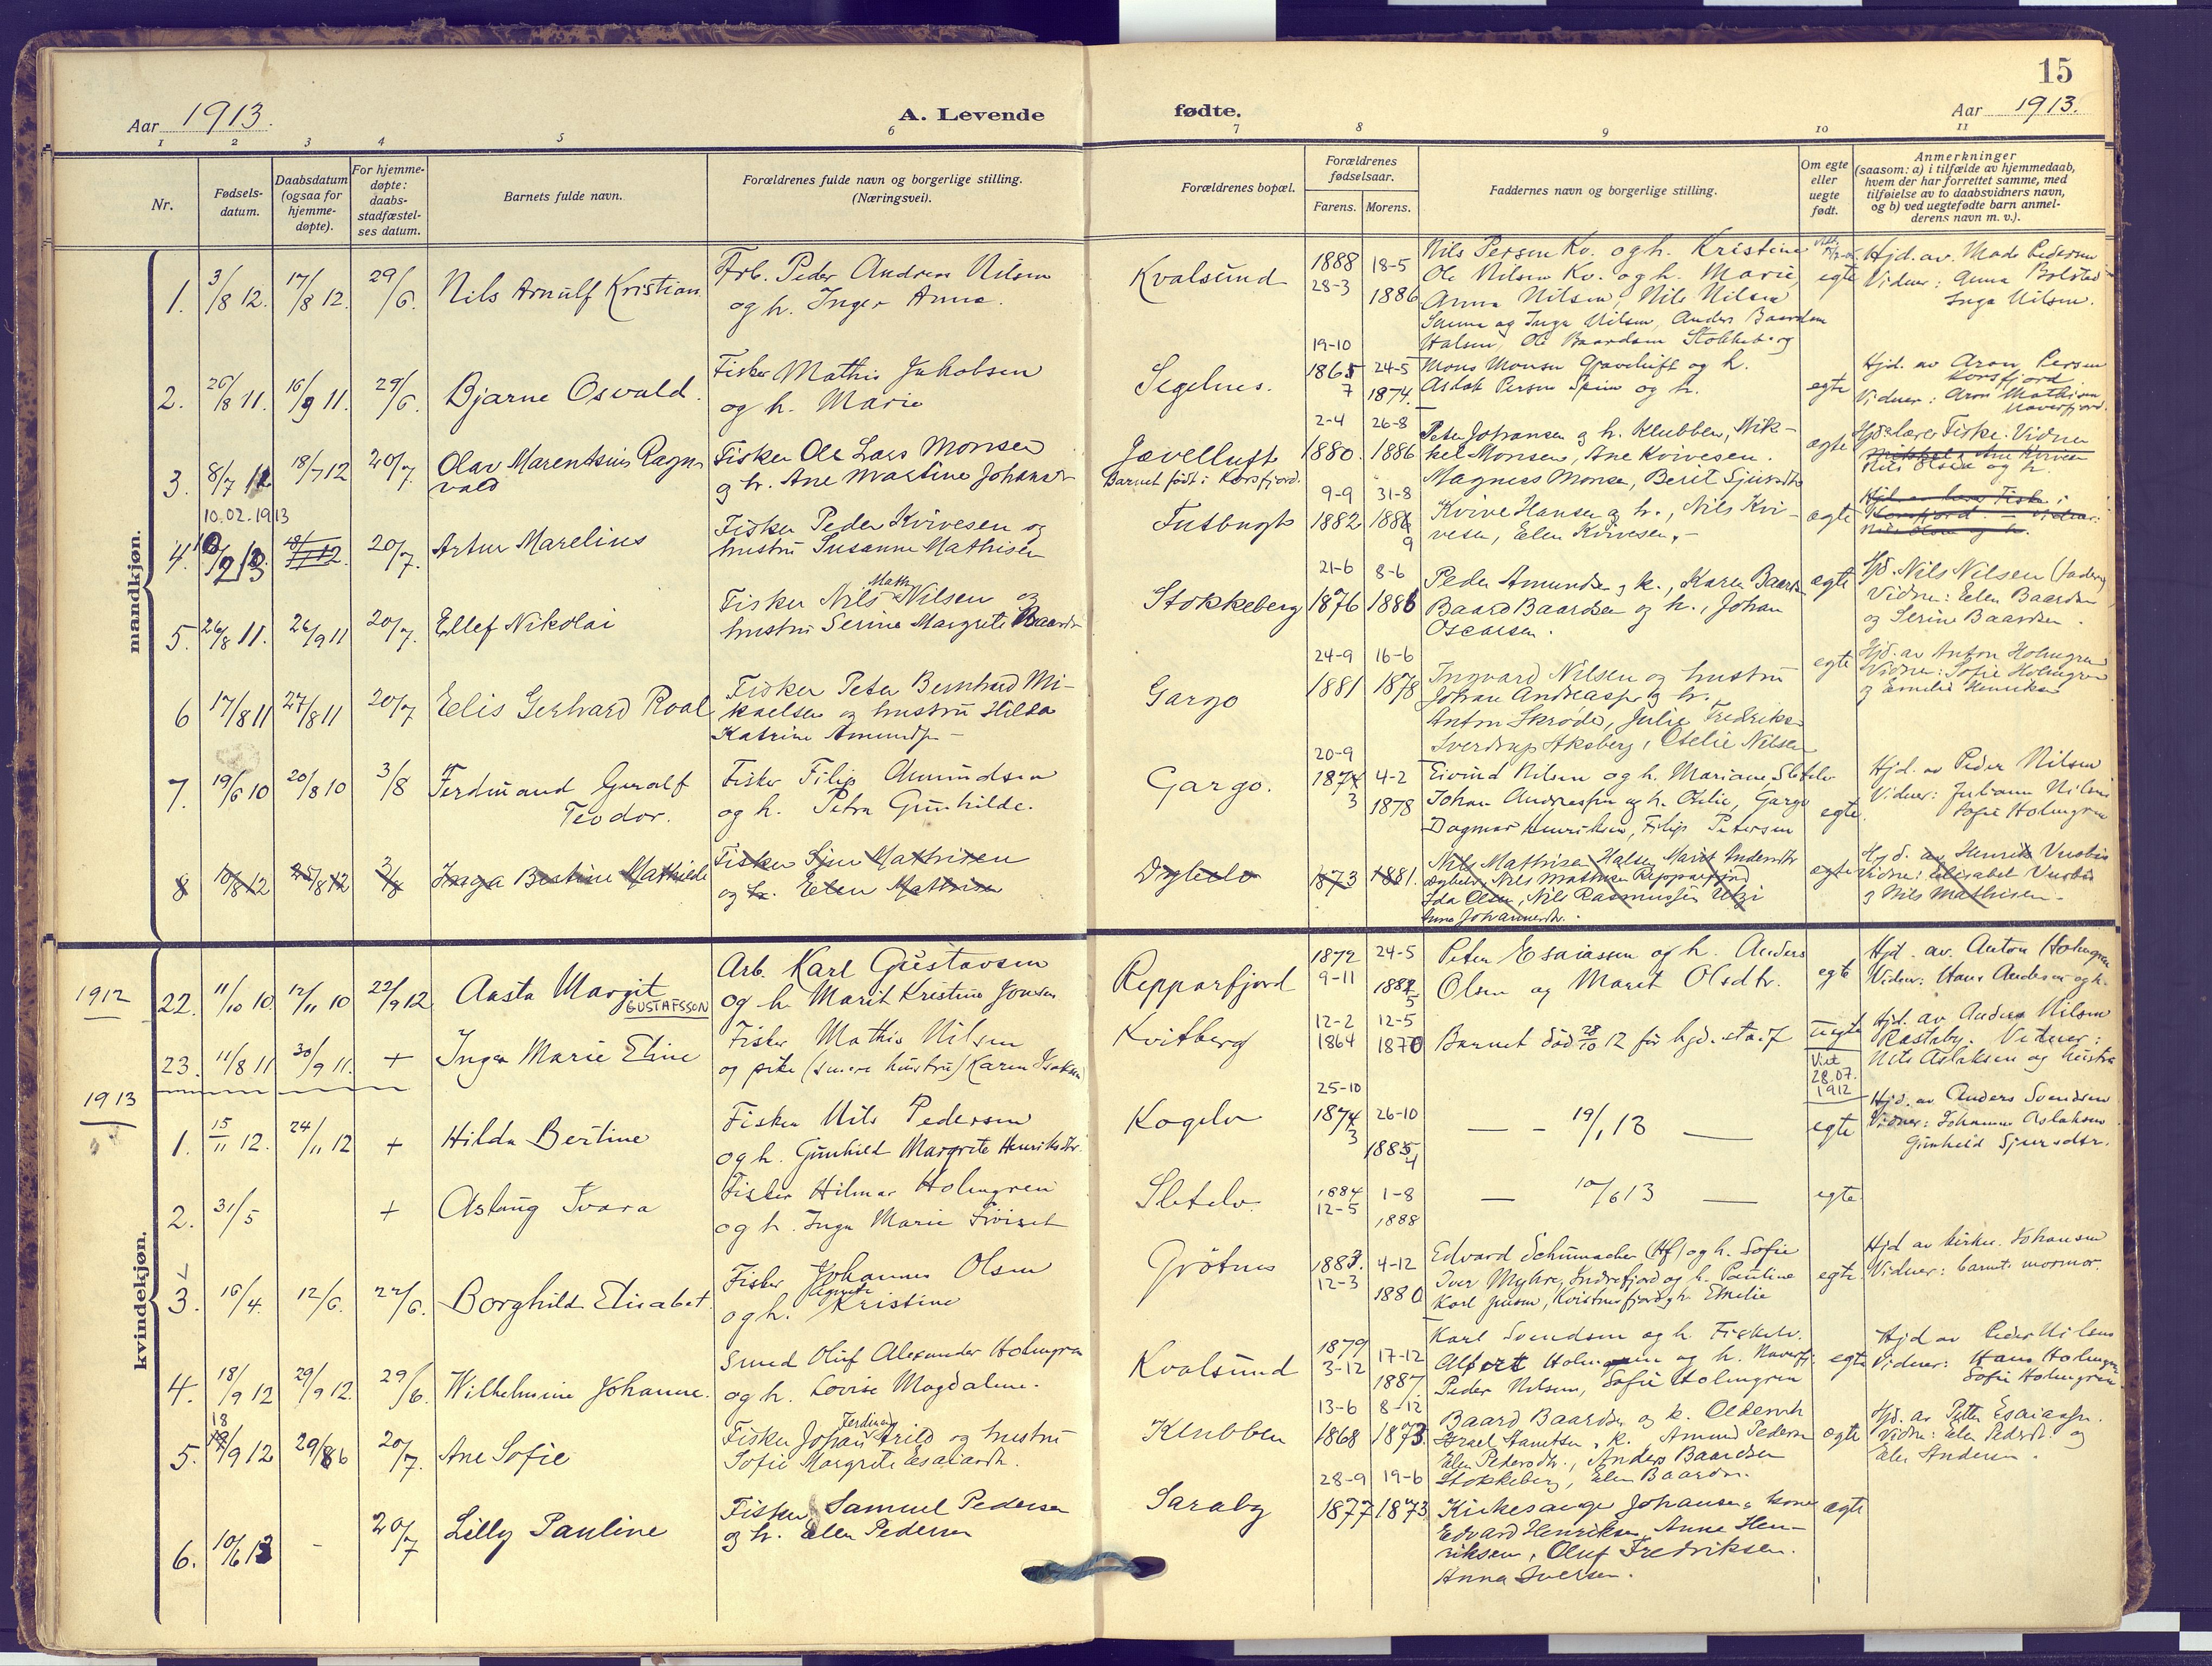 15
Aar 1913.
A. Levende
fødte.
Aar 1913.
1 2 3 4 5 6 7 8 9 10 11
Nr.
Fødsels-
datum.
Daabsdatum
(ogsaa for
hjemme-
døpte).
For hjemme-
døpte:
daabs-
stadfæstel-
ses datum.
Barnets fulde navn.
Forældrenes fulde navn og borgerlige stilling.
(Næringsvei).
Forældrenes bopæl.
Forældrenes
fødselsaar.
Farens. Morens.
Faddernes navn og borgerlige stilling.
Om egte
eller
uegte
født.
Anmerkninger
(saasom: a) i tilfælde av hjemmedaab,
hvem der har forrettet samme, med
tilføielse av to daabsvidners navn,
og b) ved uegtefødte barn anmel-
derens navn m. v.).
mandkjøn.
1. 3/8 12. 17/8 12. 29/6. Nils Arnulf Kristian
Peder Andreas Nilsen
og h. Inger Anna.
Kvalsund
1888 28-3
18-5 1886
Nils Persen Kv. og h. Kristine
Ole Nilsen Kv. og h. Marie,
Anna Nilsen, Nils Nilsen
Sanna og Inga Nilsen, Anders Baardsen
Halsen, Ole Baardsen Stokkeberg
egte
Hjd. av. Mads Pedersen
Vidner: Anna Bolstad
Inga Nilsen.
2. 26/8 11. 16/9 11. 29/6 Bjarne Osvald.
Fisker Mathis Jakobsen
og h. Marie
Segelnes.
19-10 1865 7
24-5 1874.
Mons Monsen Graveluft og h.
Aslak Persen og h.
egte
Hjd. av Aron Persen
Korsfjord
Vidner: Aron Mathisen
Naverfjord.
3. 8/7 12 18/7 12 20/7. Olav Marentsius Ragn-
vald
Fisker Ole Lars Monsen
og h. Ane Martine Johansdr
Jævelluft
Barnet født i Korsfjord.
2-4 1880.
26-8 1886
Peter Johansen og h. Klubben, Mik-
kel Monsen, Ane Kvivesen.
Magnus Monsen, Berit Sjursdtr
egte
Hjd. lærer Fiske. Vidner
Nils Olsen og h.
10.02.1913
4. 10/2 13 18/7 12. 20/7. Artur Marelius
Fisker Peder Kvivesen og
hustru Susanne Mathisen
Tutbugt
9-9 1882
31-8 1886 9
Kvive Hansen og h., Nils Kvi-
vesen, Elen Kvivesen.
egte
Hjd. av lærer Fiske i
Korsfjord - Vidner:
Nils Olsen og h.
5. 26/8 11. 26/9 11 20/7. Ellef Nikolai
Fisker Nils Math Nilsen og
hustru Serine Margrete Baardsr
Stokkeberg
21-6 1876
8-6 1886
Peder Amundsen og k., Karen Baardsen
Baard Baardsen og h., Johan
Oscarsen.
egte
Hjd. Nils Nilsen (fader)
Vidner: Elen Baardsen
og Serine Baardsen.
6 17/8 11 27/8 11 20/7 Eelis Gerhard Roal
Fisker Peter Bernhard Mi-
kaelsen og hustru Hilda
Katrine Amundsr
Gargo
24-9 1881
16-6 1878
Ingvard Nilsen og hustru
Johan Andreasen og h.
Anton Skrøder, Julie Fredriksen
Sverdrup Aksberg, Otelie Nilsen
egte
Hjd. av Anton Holmgren
Vidner: Sofie Holmgren
og Emelie Henriksen
7. 19/6 10 20/8 10 3/8 Ferdinand Guralf
Teodor.
Fisker Filip Amundsen
og h. Petra Gunhilde.
Gargo.
20-9 1874 3
4-2 1878
Eivind Nilsen og h. Mariane, Sletelv
Johan Andreassen og h. Otelie, Gargo
Dagmar Henriksen, Filip Petersen
egte
Hjd. av Peder Nilsen
Vidner: Juliane Nilsen
Sofie Holmgren
8 10/8 12 25/8 12 3/8 Inga Bertine Mathilde
Fisker Sjur Mathisen
og h. Elen Mathisen
Dyhelv
1873 1881.
Nils Mathisen Halse, Marit Andersdtr
Nils Mathisen Repparfjord
Ida Olsen, Nils Rasmussen Utzi
Anna Johannesdtr.
egte
Hjd. av Henrik
Vidner: Elisabet
og Nils Mathisen.
kvindekjøn.
1912
22. 11/10 10. 12/11 10 22/9 12. Aasta Margit
GUSTAFSSON
Arb. Karl Gustavsen
og h. Marit Kristine Jonsen
Repparfjord
1872 9-11
24-5 1882 5
Peter Esaiassen og h. Anders
Olsen og Marit Olsdtr.
egte
Hjd. av. Anton Holmgren
Vidner: Hans Andersen og h.
23. 11/8 11 30/9 11. + Inger Marie Eline
Fisker Mathis Nilsen
og pike (senere hustru) Karen Isaksen
Kvitberg
12-2 1864
12-5 1870
Barnet död 28/10 12 för hjd. staf
uegte
Viet
28.07.
1912
Hjd. av Anders Nilsen
Rastaby. Vidner:
Nils Aslaksen og hustru
1913
1. 15/11 12. 24/11 12 + Hilda Bertine
Fisker Nils Pedersen
og h. Gunhild Margrete Henriksdtr.
Kogelv
25-10 1874 3
26-10 1885 4
— - 19/1 13 —
egte
Hjd. av Anders Svendsen
Vidner: Johanne Aslaksen
Gunhild Sjursdtr.
2. 31/5 + Aslaug Ivara
Fisker Hilmar Holmgren
og h. Inga Marie
Sletelv.
1884 12-5
1-8 1888
— 10/6 13 —
egte
3. 16/4. 12/6. 22/6. Borghild Elisabet.
Fisker Johannes Olsen
og h. Agnete Kristine
Grötnes
1883. 12-3
4-12 1880
Edvard Schumacher (Hf) og h. Sofie
Iver Myhre, Indrefjord og h. Pauline
Karl Jensen, Kvistnesfjord og h. Emelie
egte
Hjd av kirkes. Johansen
Vidner: barnets mormor.
4. 18/9 12 29/9 12. 29/6. Wilhelmine Johanne.
Smed Oluf Alexander Holmgren
og h. Lovise Magdalene.
Kvalsund
1879 3-12
17-12 1887
Karl Svendsen og h. Fiskelv.
Albert Holmgren og h. Naverfj.
Peder Nilsen, Sofie Holmgren
egte
Hjd av Peder Nilsen
Vidner: Hans Holmgren
Sofie Holmgren
5. 18/9 12 29/8 20/7. Ane Sofie
Fisker Johan Ferdinand Arild og hustru
Sofie Margrete Esaiasdtr.
Klubben
13-6 1868
8-12 1873.
Baard Baardsen og k. Oldervik
Israel Hanssen, k. Amund Pedersen
Elen Pedersdtr., Anders Baardsen
Stokkeberg, Elen Baardsen.
egte
Hjd. av Petter Esaiassen.
Vidner: Elen Pedersdtr. og
Elen Andersen.
6. 10/6 13 - 20/7 Lilly Pauline
Fisker Samuel Pedersen
og h. Elen Pedersen
Saraby
28-9 1877
19-6 1873
Kirkesanger Johansen og kone
Edvard Henriksen, Anne Hen-
riksen, Oluf Fredriksen.
Anna Iversen.
egte